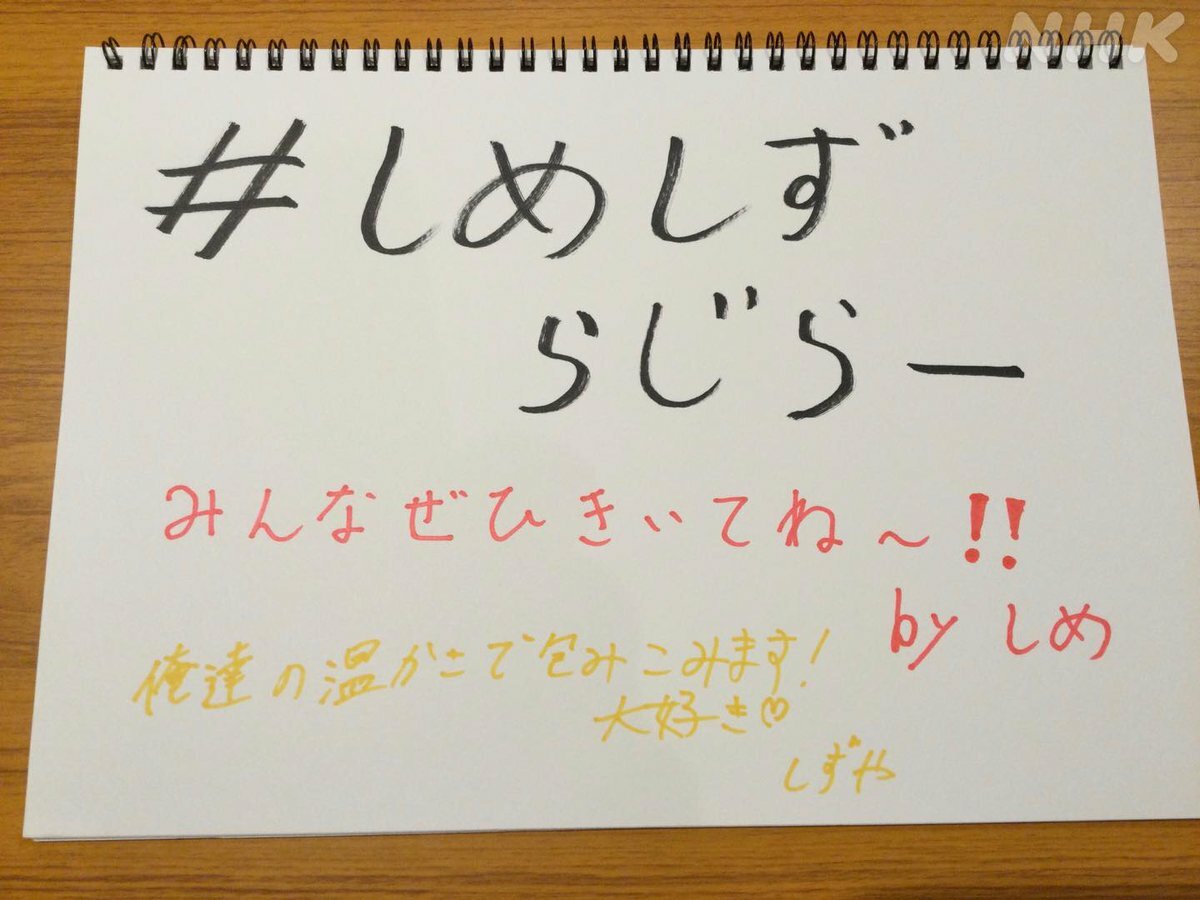 NHK
#しめしず
らじらー
みんなぜひきいてね〜!!
by しめ
俺達の温かさで包みこみます!
大好き♡
しずや